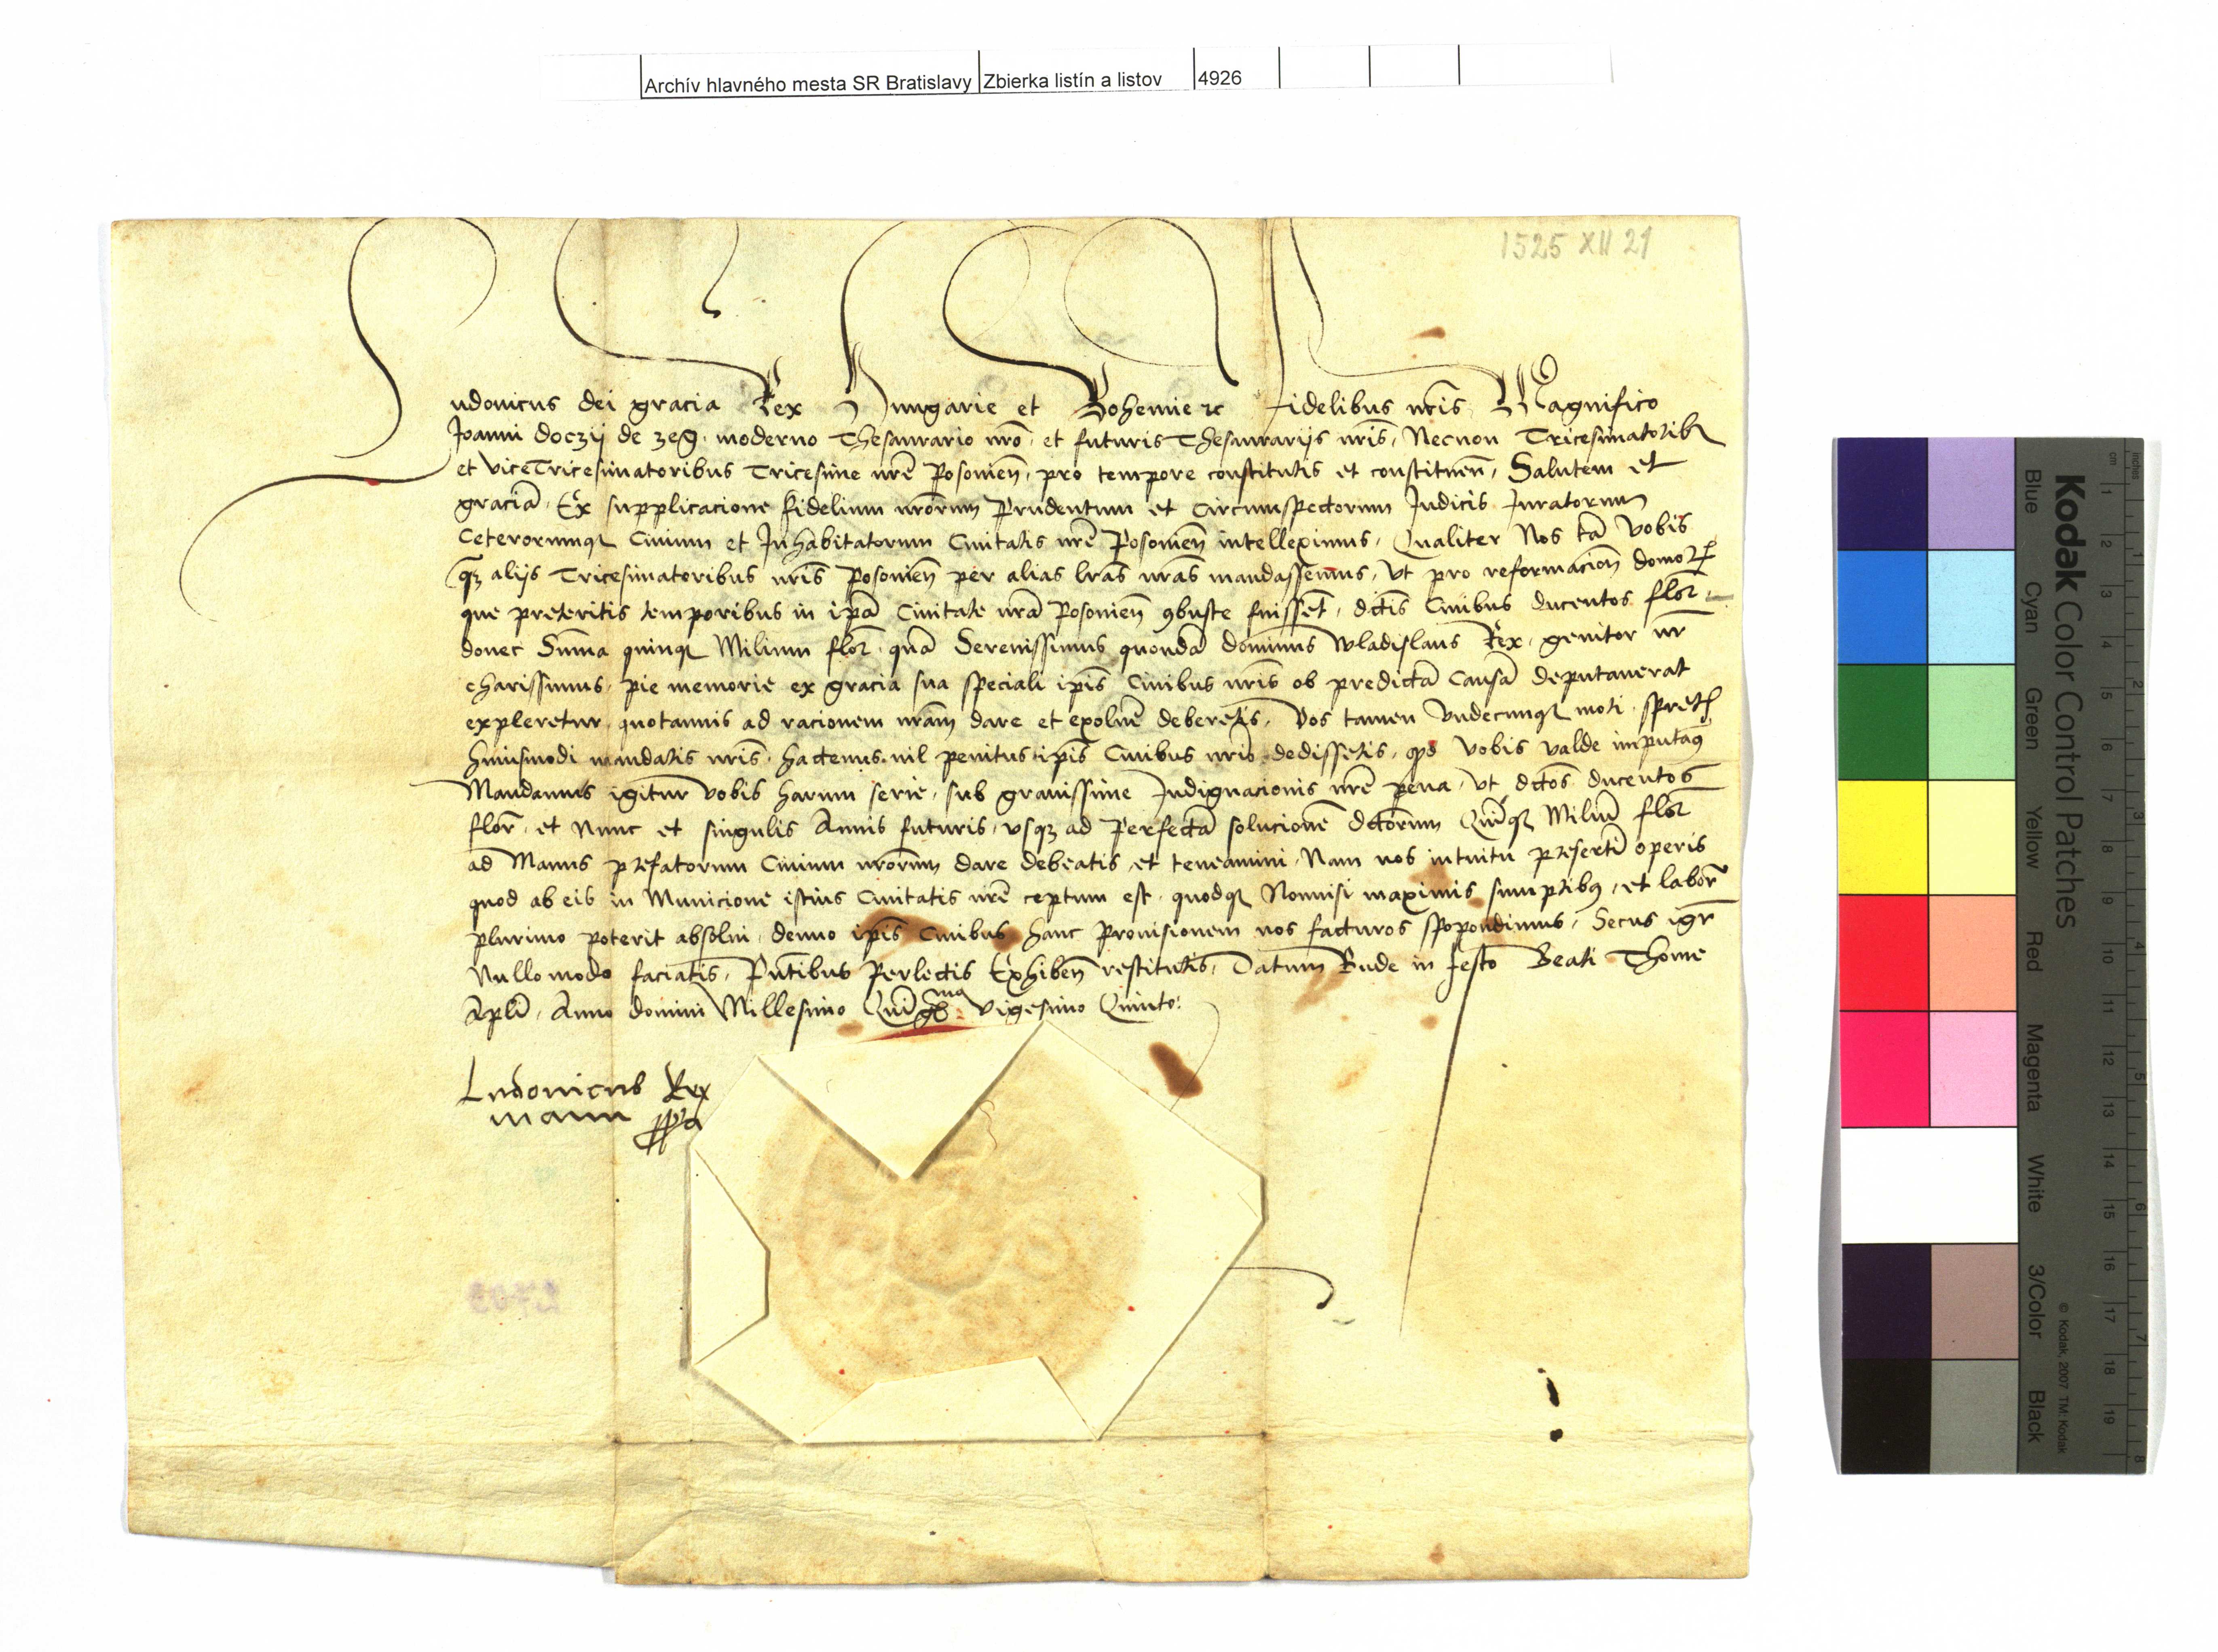 Archív hlavného mesta SR Bratislavy Zbierka listín a listov 4926
1525 XII 21
Ludouicus dei gracia Rex Hungarie et Bohemie zc Fidelibus nr̄is Magnifico
Joanni doczÿ de zeg. moderno Thesaurario nr̄o, et futuris Thesaurarijs nr̄is, Necnon Tricesimatorib;
et viceTricesimatoribus Tricesime nr̄e Posonien̄, pro tempore constitutis et constituen̄, Salutem et
graciā, Ex supplicacione fidelium nr̄orum Prudentum et Circumspectorum Judicis Juratorum
Ceterorumq; Ciuium et Inhabitatorum Ciuitatis nr̄e Posonien̄ intelleximus, Qualiter Nos tā vobis
qz alijs Tricesimatoribus nr̄is Posonien̄ per alias lr̄as nr̄as mandassemus, vt pro reformacion̄ domoꝝ
que preteritis temporibus in ip̄a Ciuitate nr̄a Posonien̄ ꝯbuste fuissēt, dc̄tis Ciuibus ducentos flor̄
donec Sum̄a quinq; Milium flor̄. quā Serenissimus quondā dominus wladislaus Rex, genitor nr̄
charissimus, pie memorie ex gracia sua speciali ip̄is Ciuibus nr̄is ob predictā Causā deputauerat
expleretur, quotannis ad racionem nr̄am dare et exolue͞ deberetis, Vos tamen Vndecunq; moti, spret
huiusmodi mandatis nr̄is, hactenus nil penitus ip̄is Ciuibus nr̄is dedissetis, qd vobis valde imputaꝰ
Mandamus igitur vobis harum serie, sub grauissime Indignacionis nr̄e pena, vt dc̄tos ducentos
flor̄, et Nunc et singulis Annis futuris, vsqz ad Perfectā solucionē dc̄torum Quīq; Miliū flor̄
ad Manus prefatorum Ciuium nr̄orum dare debeatis et teneamini, Nam nos intuitu presertī operis
quod ab eis in Municione istius Ciuitatis nr̄e ceptum est, quodq; Nonnisi maximis sumptibꝰ, et labor̄
plurimo poterit absolui, denuo ip̄is Ciuibus hanc prouisionem nos facturos spopondimus, Secus igr̄
Nullomodo faciatis, Pn̄tibus Perlectis Exhiben̄ restitutis, Datum Bude in festo Beati Thome
Apl̄i, Anno domini Millesimo Quīgmo vigesimo Quinto.
Ludouicus Rex
manu ppa
Kodak Color Control Patches
Blue Cyan Green Yellow Red Magenta White 3/Color Black
© Kodak, 2007 TM: Kodak
inches 1 2 3 4 5 6 7 8
cm 1 2 3 4 5 6 7 8 9 10 11 12 13 14 15 16 17 18 19